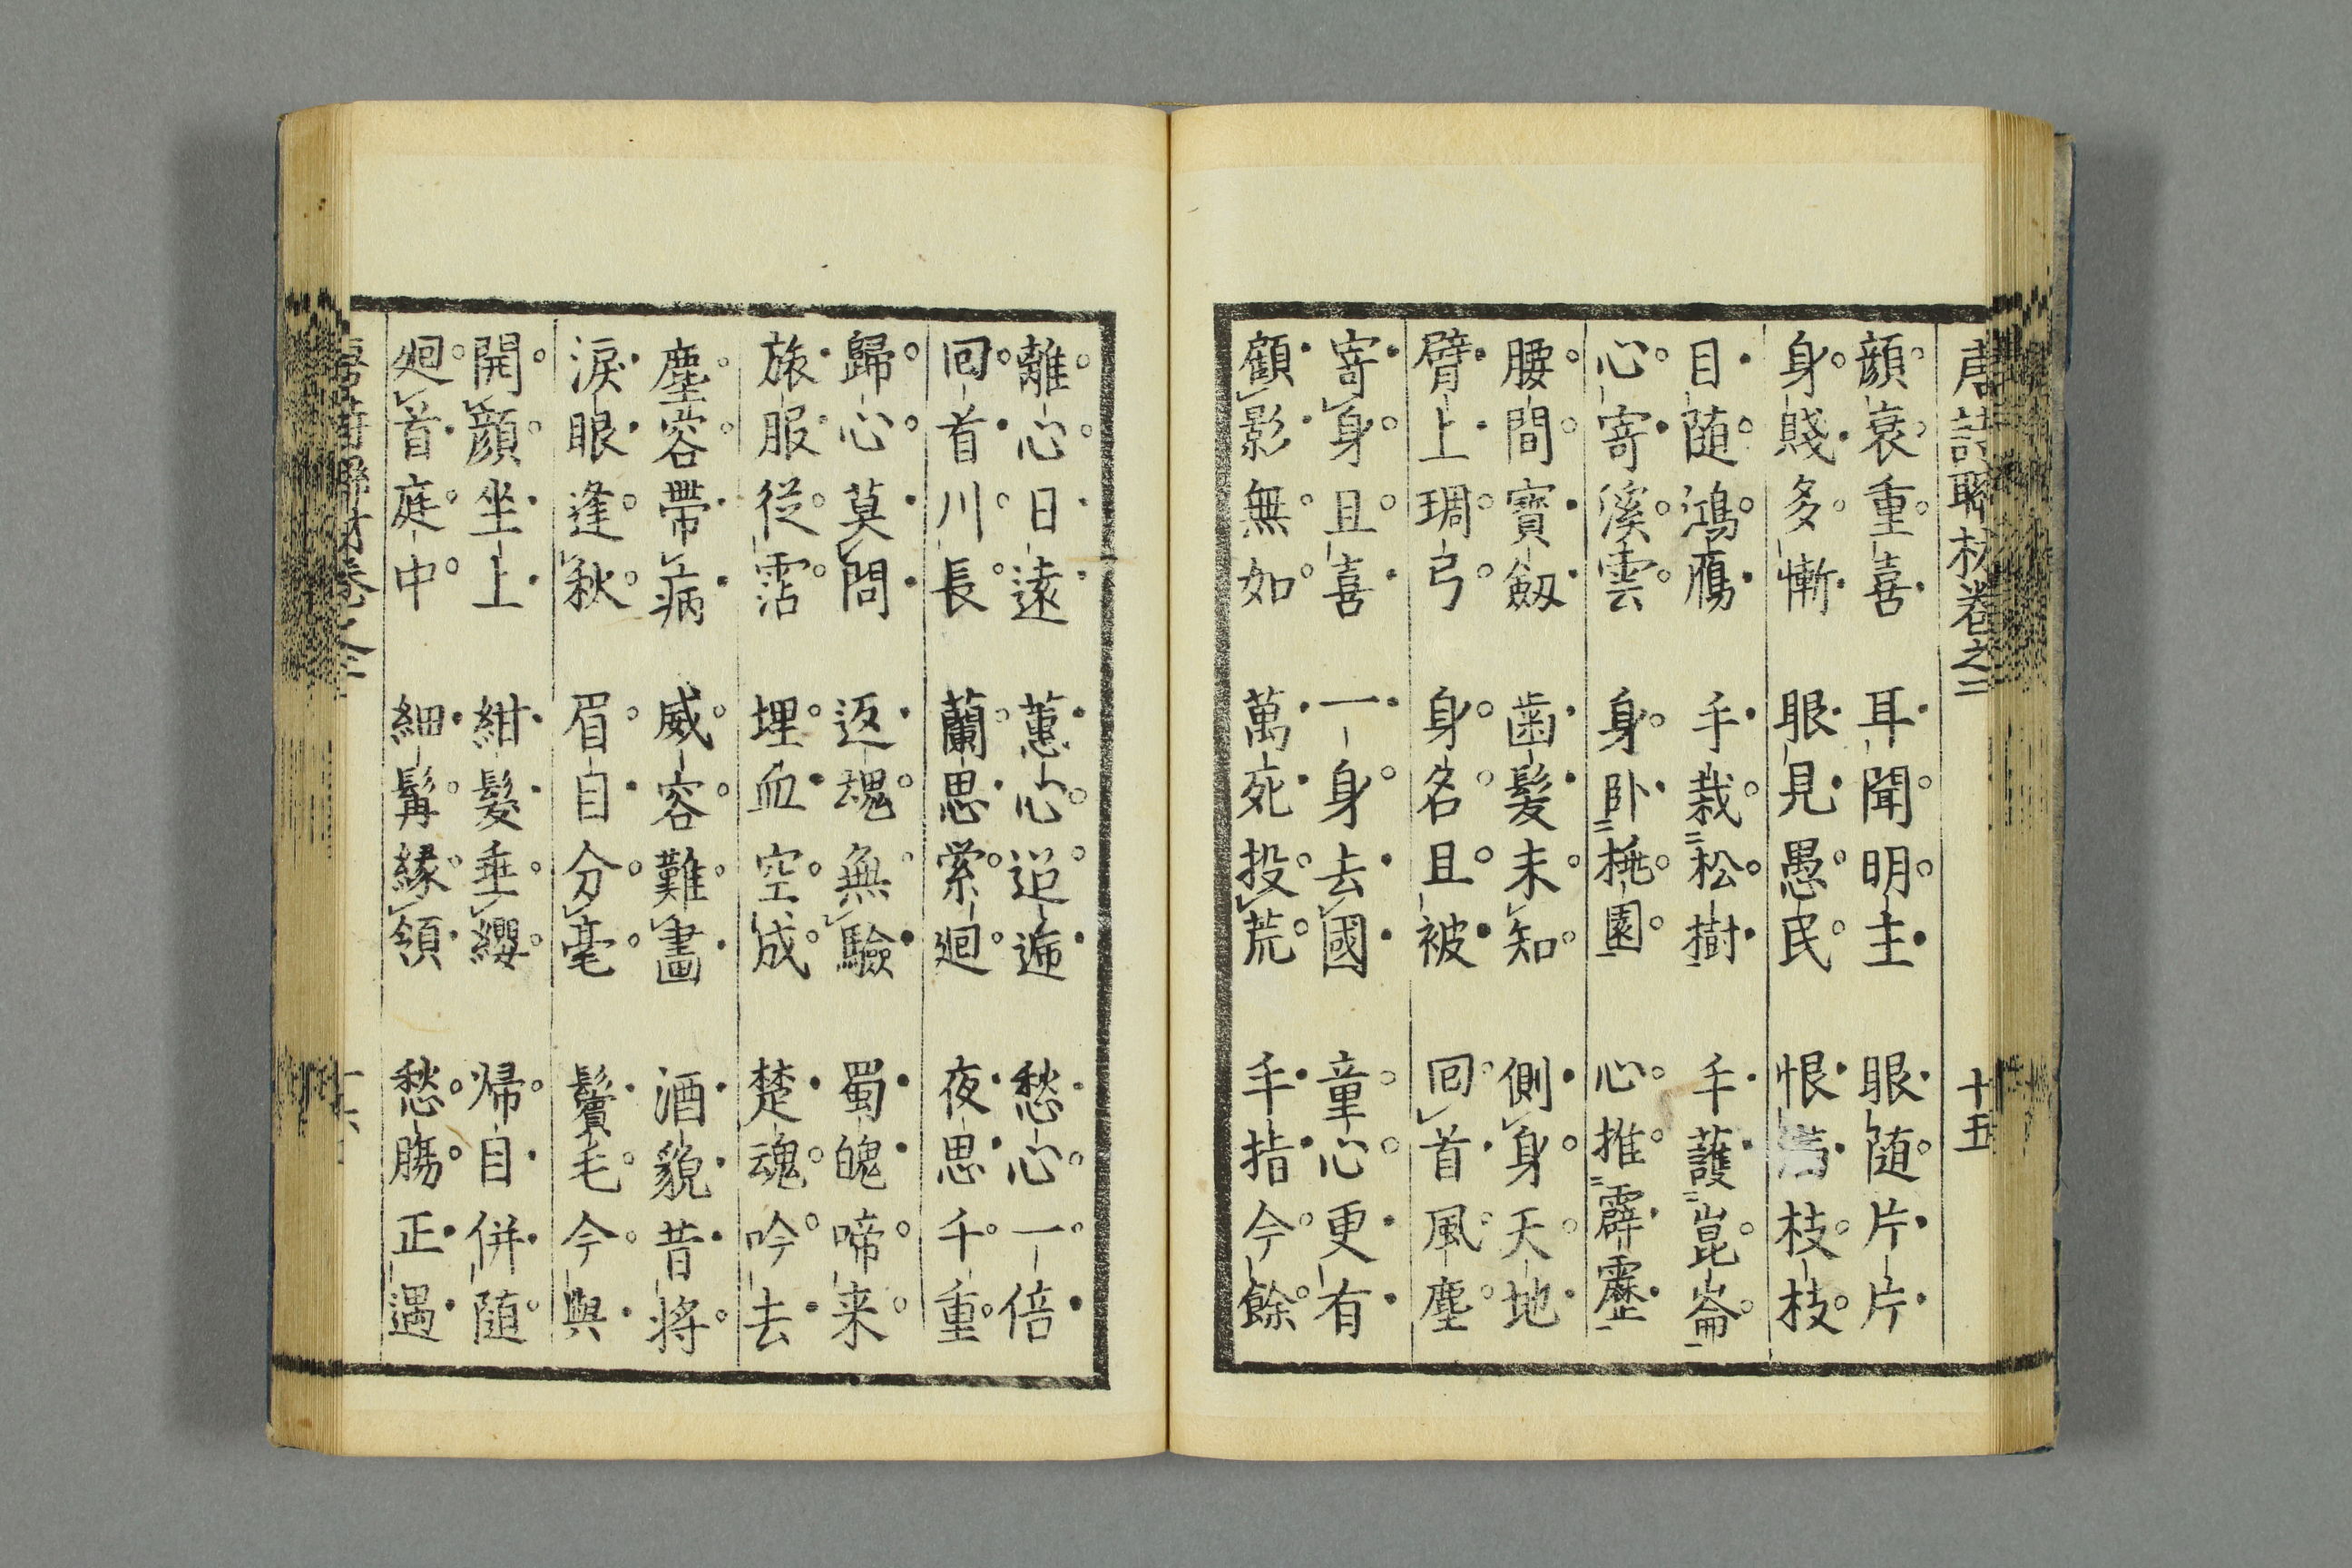 唐詩聯材卷之二 十五
顔衰重喜 耳聞明主 眼随片片
身賤多慚 眼見愚民 恨 枝枝
目随鴻鴈 手栽松樹 手護崑崙
心寄溪雲 身卧桃園 心推霹靂
腰間寶劔 歯髮未知 側身天地
臂上琱弓 身名且被 回首風塵
寄身且喜 一身去國 童心更有
顧影無如 萬死投荒 手指今餘
離心日遠 蕙心迢遞 愁心一倍
回首川長 蘭思縈廻 夜思千重
歸心莫問 返魂無驗 蜀魄啼来
旅服從霑 埋血空成 楚魂吟去
塵容帶病 威容難畫 酒貌昔将
淚眼逢秋 眉目分毫 鬢毛今與
開顔坐上 紺髮垂纓 帰目併随
廻首庭中 細髯緣領 愁腸正遇
唐詩聯材卷之二 十六